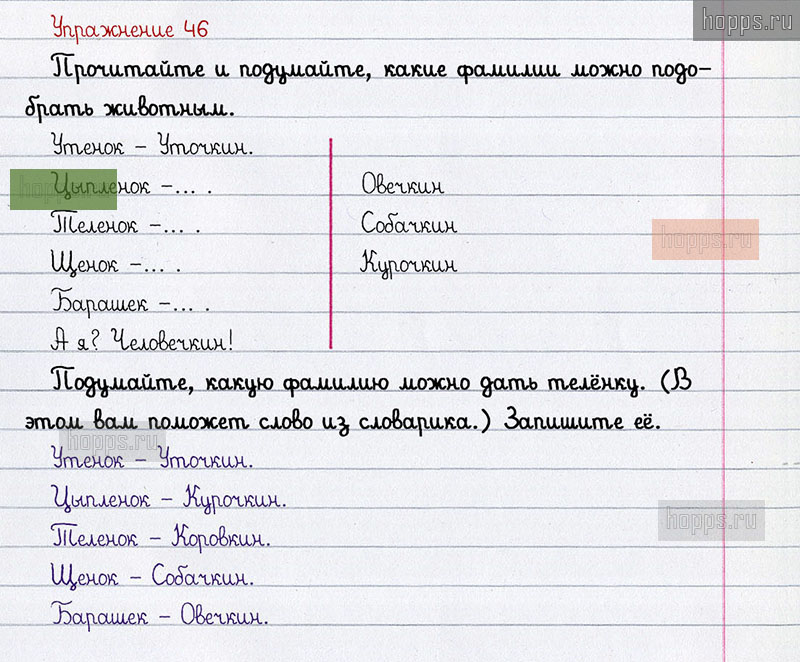 hopps.ru
Упражнение 46
Прочитайте и подумайте, какие фамилии можно подо-
брать животным.
Утенок – Уточкин.
Цыпленок –... .
Овечкин
Теленок –... .
Собачкин
Щенок –... .
Курочкин
Барашек –... .
А я? Человечкин!
hopps.ru
hopps.ru
Подумайте, какую фамилию можно дать телёнку. (В
этом вам поможет слово из словарика.) Запишите её.
hopps.ru
Утенок – Уточкин.
Цыпленок – Курочкин.
Теленок – Коровкин.
hopps.ru
Щенок – Собачкин.
Барашек – Овечкин.